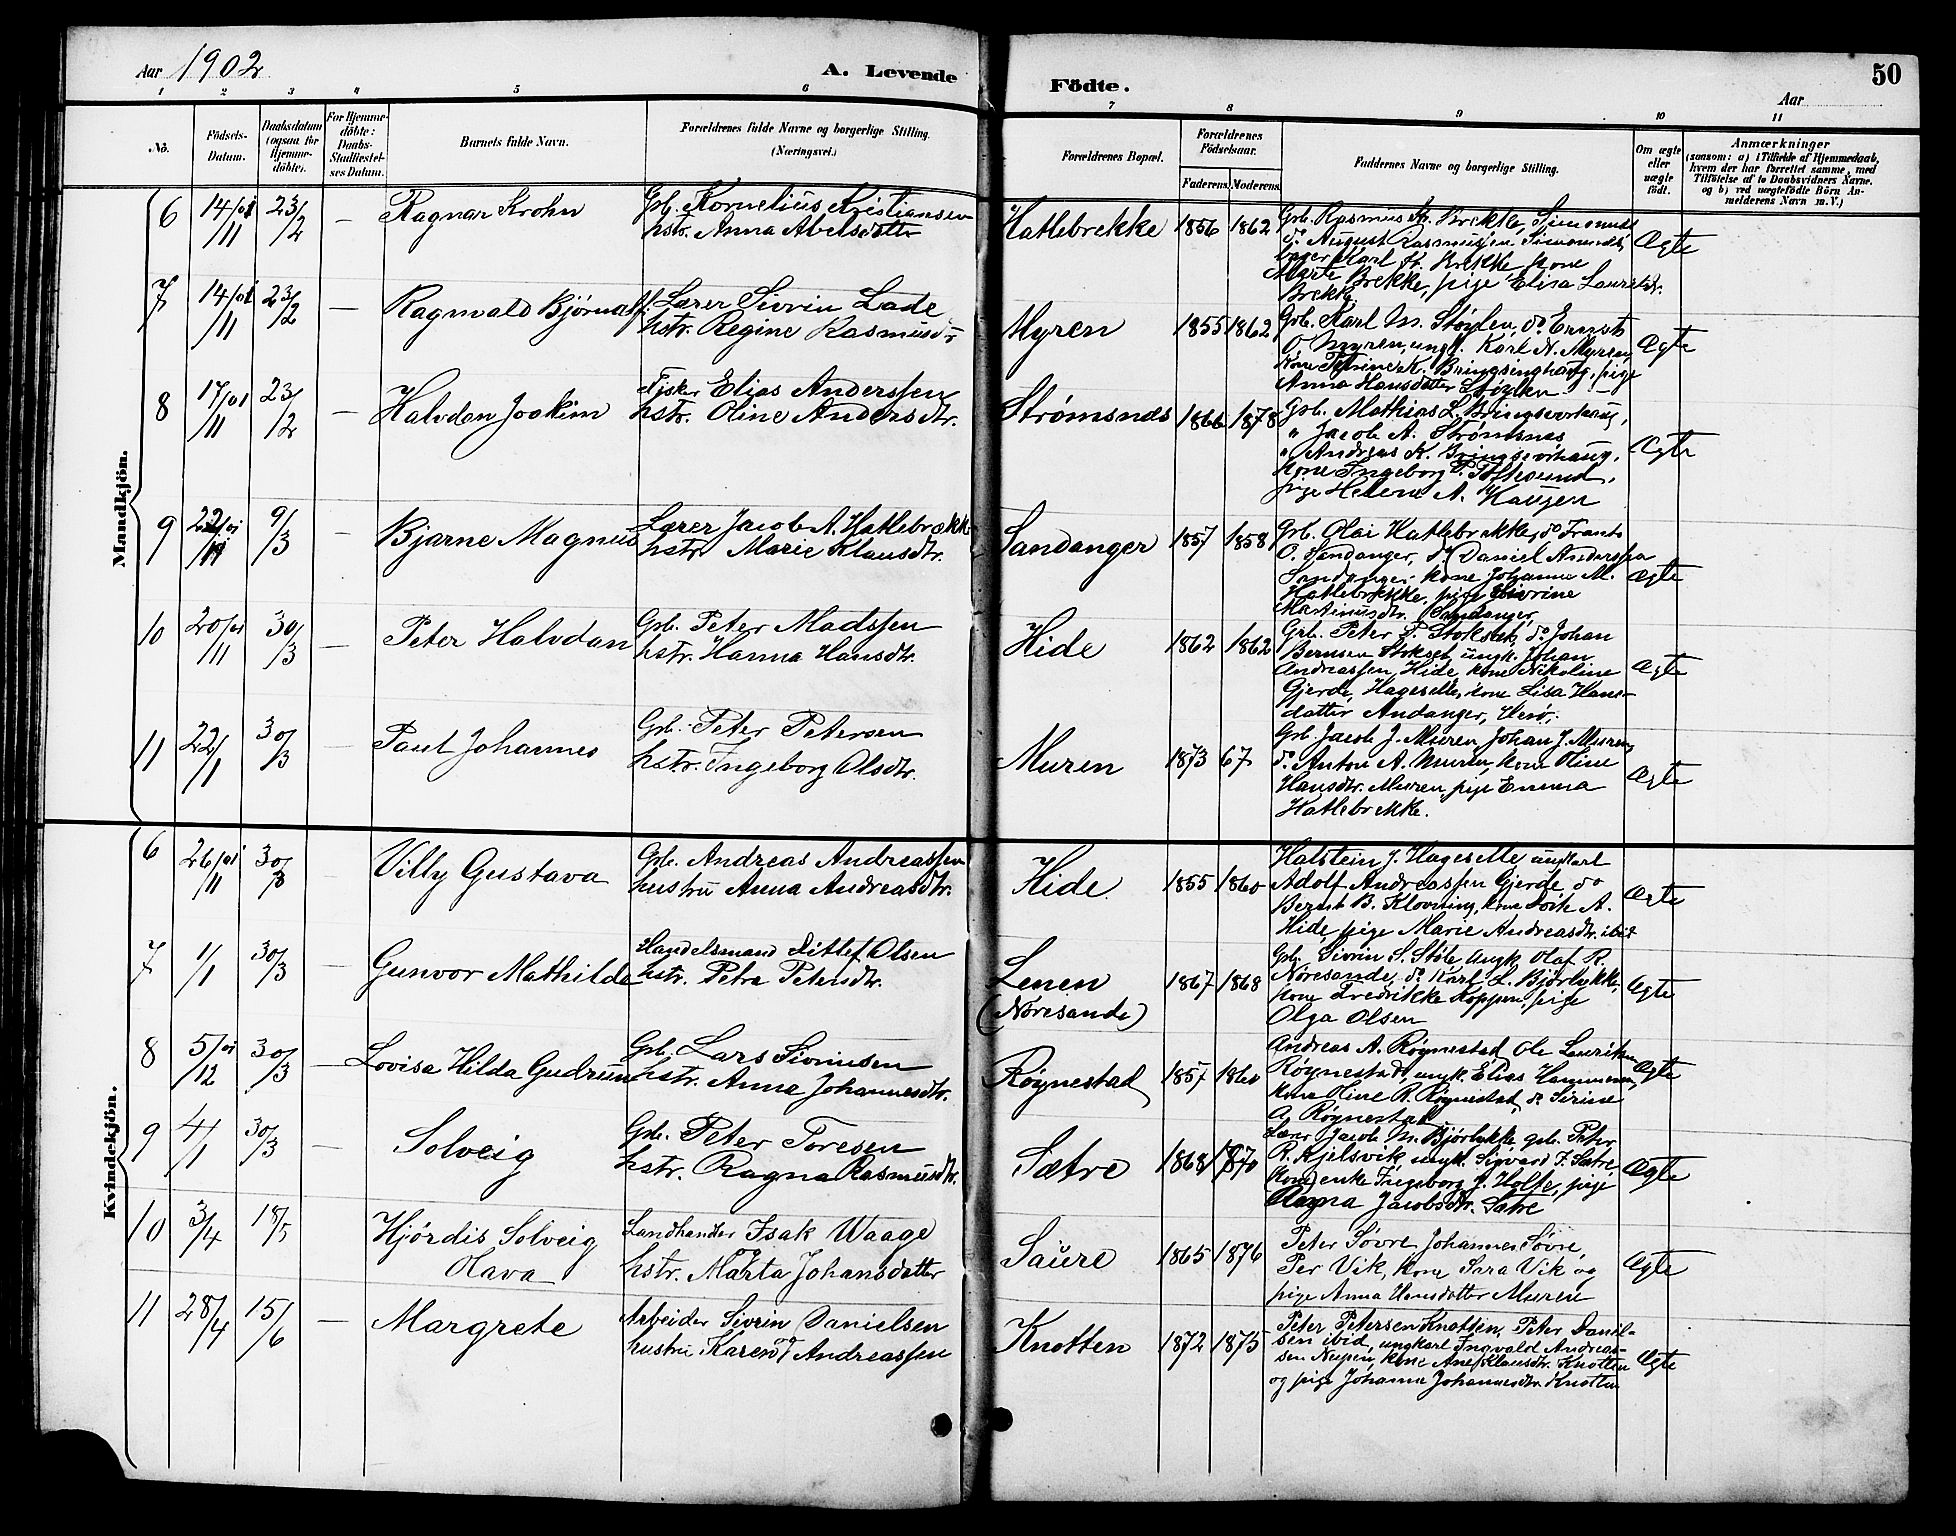 Aar 1902
A. Levende Födte.
50
Aar
1 2 3 4 5 6 7 8 9 10 11
No.
Födsels-
Datum.
Daabsdatum
(ogsaa for
Hjemme-
döbte).
For Hjemme-
döbte:
Daabs-
Stadfæstel-
ses Datum.
Barnets fulde Navn.
Forældrenes fulde Navne og borgerlige Stilling.
(Næringsvei.)
Forældrenes Bopæl.
Forældrenes
Födselsaar.
Faderens. Moderens.
Faddernes Navne og borgerlige Stilling.
Om ægte
eller
uægte
födt.
Anmærkninger
(saasom: a) i Tilfælde af Hjemmedaab,
hvem der har forrettet samme, med
Tilföielse af to Daabsvidners Navne,
og b) ved uægtefödte Börn An-
melderens Navn m. V.)
Mandkjön.
6 14/11 01 23/2 — Ragnar Krohn
Gb. Kornelius Kristiansen
hstr. Anna Abelsdatter
Hatlebrekke 1856 1862
Gb. Rasmus K. Brekke, Simonnes
do August Rasmussen Simonnes,
Karl K. Brekke, kone
Marte Brekke, pige Elisa Lauritsdr.
Brekke
Ægte
7 14/11 01 23/2 — Ragnvald Bjørnulf
Lærer Sivrin Lade
hstr. Regine Rasmusdr
Myren 1855 1862
Gb. Karl M. Støylen, do Ernst
O. Myren, ungk. Karl N. Myren,
kone Petrine K. Bringsinghaug, pige
Anna Hansdatter Støylen
Ægte
8 17/11 01 23/2 — Halvdan Joakim
Fisker Elias Anderssen
hstr. Oline Andersdtr.
Strømsnes 1866 1878
Gb. Mathias L. Bringsvorhaug,
" Jacob A. Strømsnes
" Andreas K. Bringsvorhaug,
kone Ingeborg P. Toftesund,
pige Helene A. Haugen
Ægte
9 22/11 01 9/3 — Bjarne Magnus
Lærer Jacob A. Hatlebrække
hstr. Marie Klausdtr.
Sandanger 1857 1858
Gb. Olai Hatlebrekke, do Frants
O. Sandanger, do Daniel Anderssen
Sandanger, kone Johanne M.
Hatlebrekke, pige Sivrine
Martinusdtr. Sandanger,
Ægte
10 20/11 01 30/3 — Peter Halvdan
Gb. Peter Madssen
hstr. Hanna Hansdtr.
Hide 1862 1862
Gb. Peter P. Stokset, do Johan
Berntsen Stokset, ungk. Johan
Andreassen Hide, kone Nikoline
Gjerde, Hageselle, kone Lisa Hans-
datter Andanger, Herø,
Ægte
11 22/1 30/3 — Paul Johannes
Gb. Peter Petersen
hstr. Ingeborg Olsdtr.
Muren 1873 67
Gb. Jacob J. Muren, Johan J. Muren,
do Anton A. Muren, kone Oline
Hansdtr. Muren, pige Emma
Hatlebrekke.
Ægte
Kvindekjön.
6 26/11 01 30/3 Villy Gustava
Gb. Andreas Andreassen
hustru Anna Andreasdtr.
Hide 1855 1860
Halstein J. Hageselle, ungkarl
Adolf Andreassen Gjerde, do
Bernt B. Klovning, kone A.
Hide, pige Marie Andreasdtr. ibid
Ægte
7 1/1 30/3 — Gunvor Mathilde
Handelsmand Ditlef Olsen
hstr. Petra Petersdtr.
Lenen
(Nøresande) 1867 1868
Gb. Sivrin S. Støle, ungk. Olaf R.
Nøresande, do Karl L. Bjørlykke,
kone Fredrikke Koppen, pige
Olga Olsen
Ægte
8 5/12 01 30/3 — Lovisa Hilda Gudrun
Gb. Lars Sivrinsen
hstr. Anna Johannesdtr.
Røynestad 1857 1860
Andreas A. Røynestad, Ole Lauritsen
Røynestad, ungk. Elias Hammeren,
kone Oline R. Røynestad, do Sirine
A. Røynestad
Ægte
9 4/1 30/3 — Solveig
Gb. Peter Toresen
hstr. Ragna Rasmusdtr.
Sætre 1868 1870
Lærer Jacob M. Bjørlykke, gb. Peter
R. Kjelsvik, ungk. Sigvard F. Sætre,
kone) enke Ingeborg J. Holte, pige
Anna Jacobsdtr. Sætre
Ægte
10 3/4 18/5 Hjørdis Solveig
Olava
Landhandler Isak Waage
hstr. Marta Johansdatter
Saure 1865 1876
Peter Søvre, Johannes Søvre,
Per Vik, kone Sara Vik og
pige Anna Hansdatter Muren
Ægte
11 28/4 15/6 — Margrete
Arbeider Sivrin Danielsen
hustru Karen Andreassen
Knotten 1872 1875
Peter Petersen Knotten, Peter Daniel-
sen ibid, ungkarl Ingvald Andreas-
sen Neupen, kone Ane Klausdtr. Knotten
og pige Johanne Johannesdtr. Knotten
Ægte